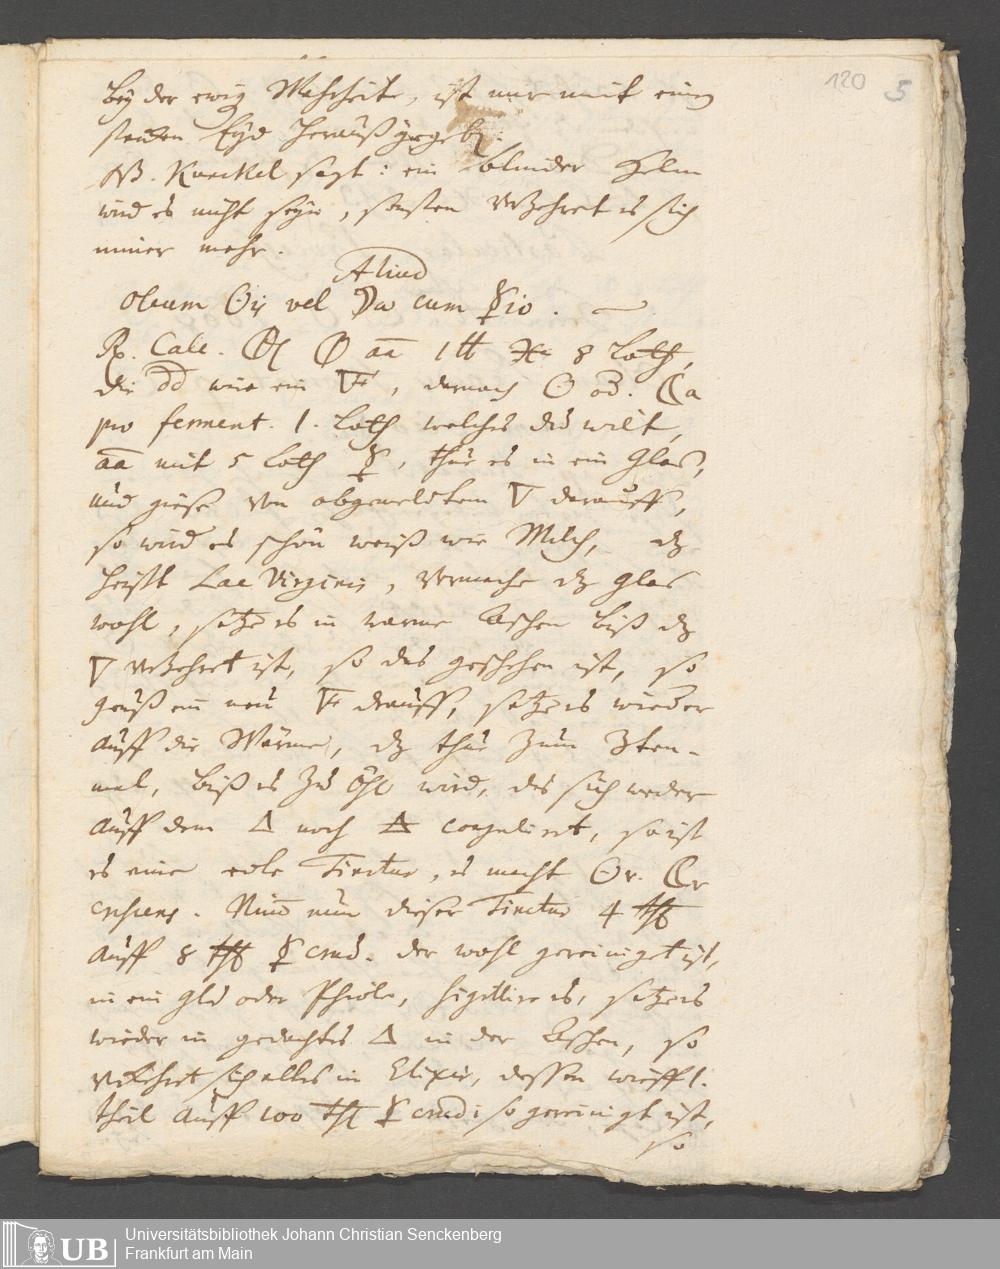 120 5
bey der ewig Wahrheit, ist nur mit einem
Eyd heraußgegeb.
NB. Kunckel sagt: ein blinder Helm
wird es nicht seyn, sonsten verzehret es sich
nimer mehr.
Aliud
Oleum ☉ij vel ☽æ cum ☿io.
Rp. Calc. aā 1 ℔ 8 Loth,
die wie ein 🜄, darnach ☉ od. ☾a
pro ferment. 1. Loth welches du wilt,
aā mit 5 Loth ☿, thue es in ein Glas,
und giese von obgemeldtem 🜄 darauff,
so wird es schön weiß wie Milch, dz
heist Lac Virginis, vermache dz Glas
wohl, setze es in warme Aschen biß dz
🜄 verzehret ist, so das geschehen ist, so
geuß ein neu drauff, setze es wieder
auff die Wärme, dz thue zum 3ten-
mal, biß es zu Öhl wird, das sich weder
auff dem 🜂 noch 🜁 coagulirt, so ist
es eine edle Tinctur, es macht ☉. ☾
Nim nun dieser Tinctur 4 thl
auff 8 thl ☿ crud. der wohl gereiniget ist,
in ein Glas oder Phiole, sigillire es, setze es
wieder in gedachtes 🜂 in der Aschen, so
verkehrt sich alles in Elixir, dessen wirff 1.
theil auff 100 thl ☿ crudi so gereinigt ist,
so
UB
Universitätsbibliothek Johann Christian Senckenberg
Frankfurt am Main